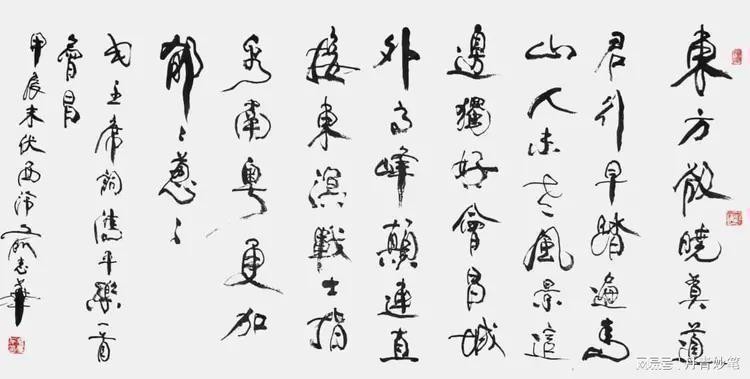 東方欲曉莫道
君行早踏遍青
山人未老風景這
邊獨好會昌城
外高峰顛連直
接東溟戰士指
看南粵更加
郁〻蔥〻
毛主席詞清平樂一首
會昌
甲辰末伏西 志華
搜狐号@丹青妙笔